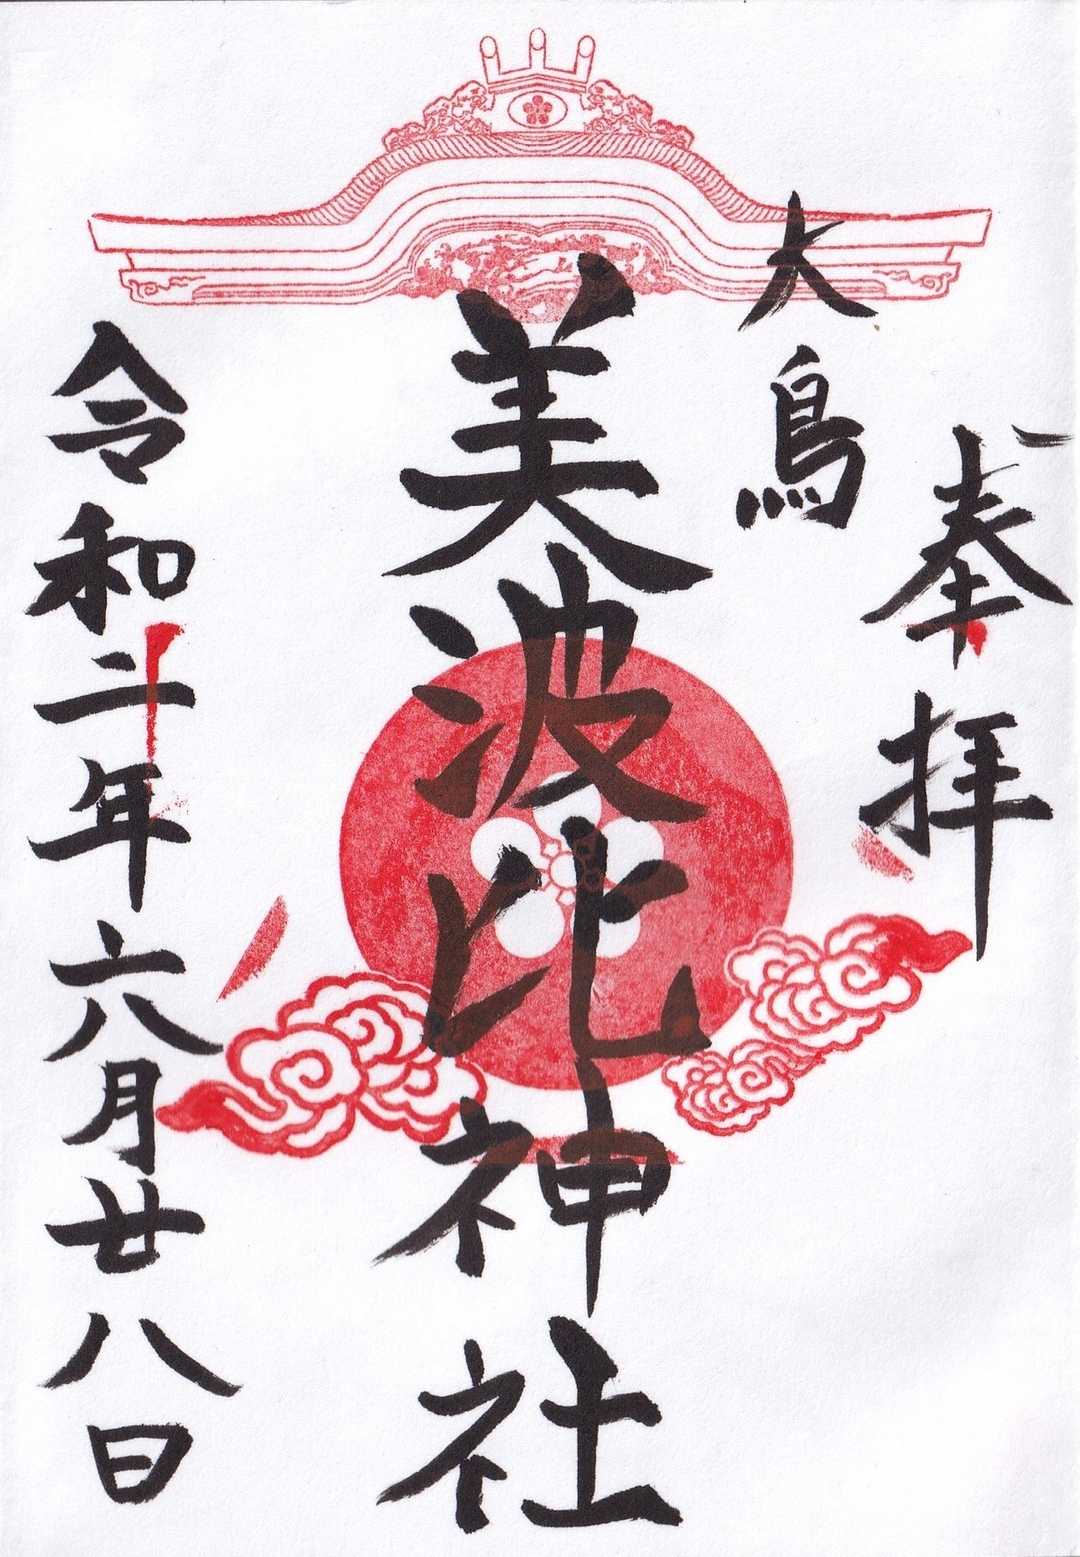 奉拝
大鳥
美波比神社
令和二年六月廿八日